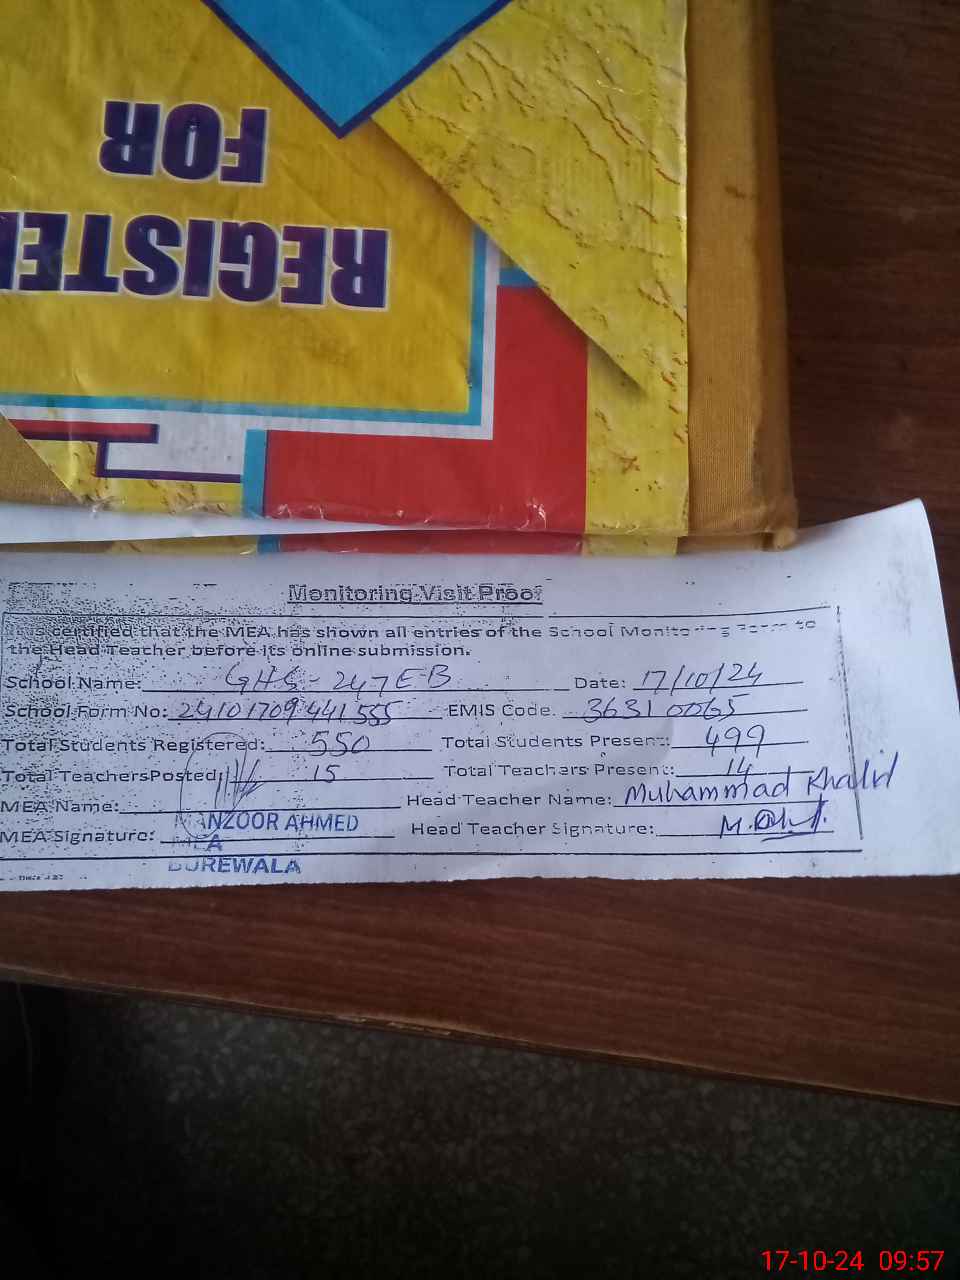 REGISTE
FOR
Monitoring Visit Proof
It is certified that the MEA has shown all entries of the School Monitoring Form to
the Head Teacher before its online submission.
School Name: GHS - 247 EB Date: 17/10/24
School Form No: 24101709441555 EMIS Code. 36310065
Total Students Registered: 550 Total Students Present: 499
Total TeachersPosted: 15 Total Teachers Present: 14
MEA Name: Head Teacher Name: Muhammad Khalid
MANZOOR AHMED
MEA Signature: Head Teacher Signature:
MEA
BUREWALA
17-10-24 09:57